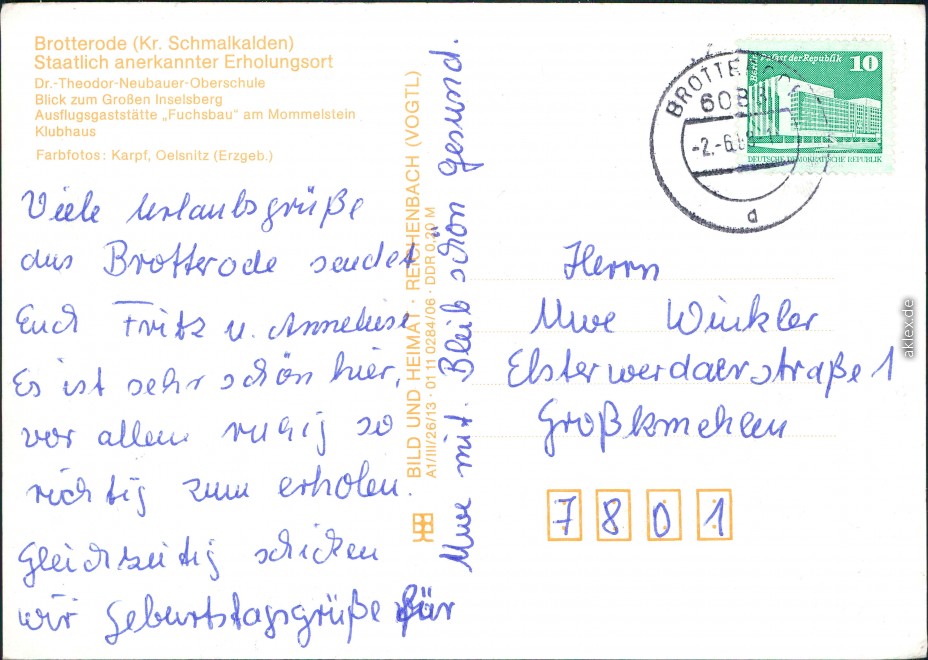 Brotterode (Kr. Schmalkalden)
Staatlich anerkannter Erholungsort
Dr.-Theodor-Neubauer-Oberschule
Blick zum Großen Inselsberg
Ausflugsgaststätte „Fuchsbau“ am Mommelstein
Klubhaus
Farbfotos: Karpf, Oelsnitz (Erzgeb.)
Viele Urlaubsgrüße
aus Brotterode sendet
Euch Fritz u. Anneliese
Es ist sehr schön hier,
vor allem ruhig so
richtig zum erholen.
Gleichzeitig schicken
wir Geburtstagsgrüße für
Uwe mit. Bleib schön gesund.
BILD UND HEIMAT · REICHENBACH (VOGTL)
A1/III/26/13 · 01 11 0284/06 · DDR 0,20 M
10
Palast der Republik
DEUTSCHE DEMOKRATISCHE REPUBLIK
BROTTERODE
a
Herrn
Uwe Winkler
Elsterwerdaerstraße 1
Großkmehlen
7801
aklex.de